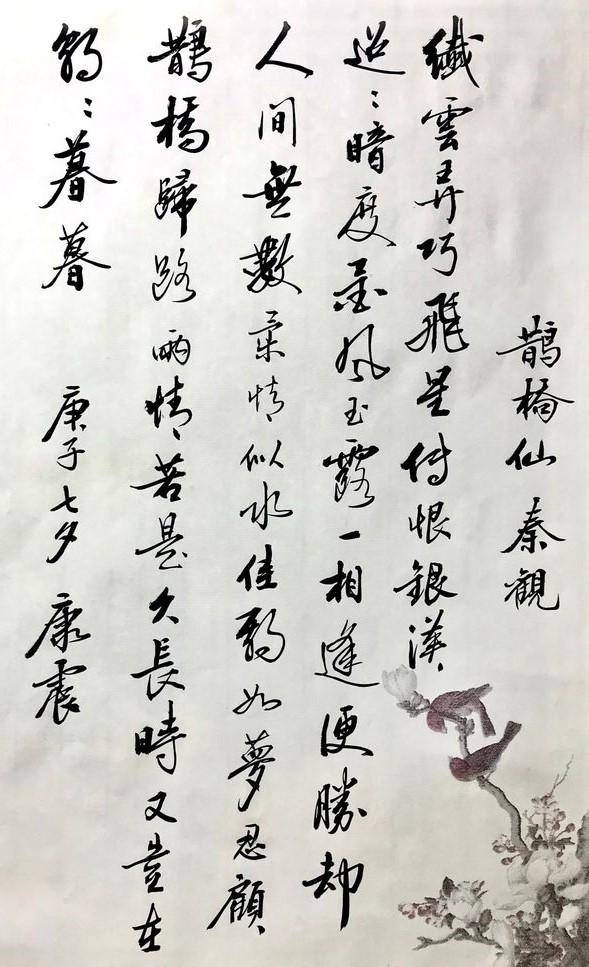 鵲橋仙 秦觀
纖雲弄巧飛星傳恨銀漢
迢〻暗度金風玉露一相逢便勝却
人間無數柔情似水佳期如夢忍顧
鵲橋歸路兩情若是久長時又豈在
朝〻暮暮 庚子七夕 康震